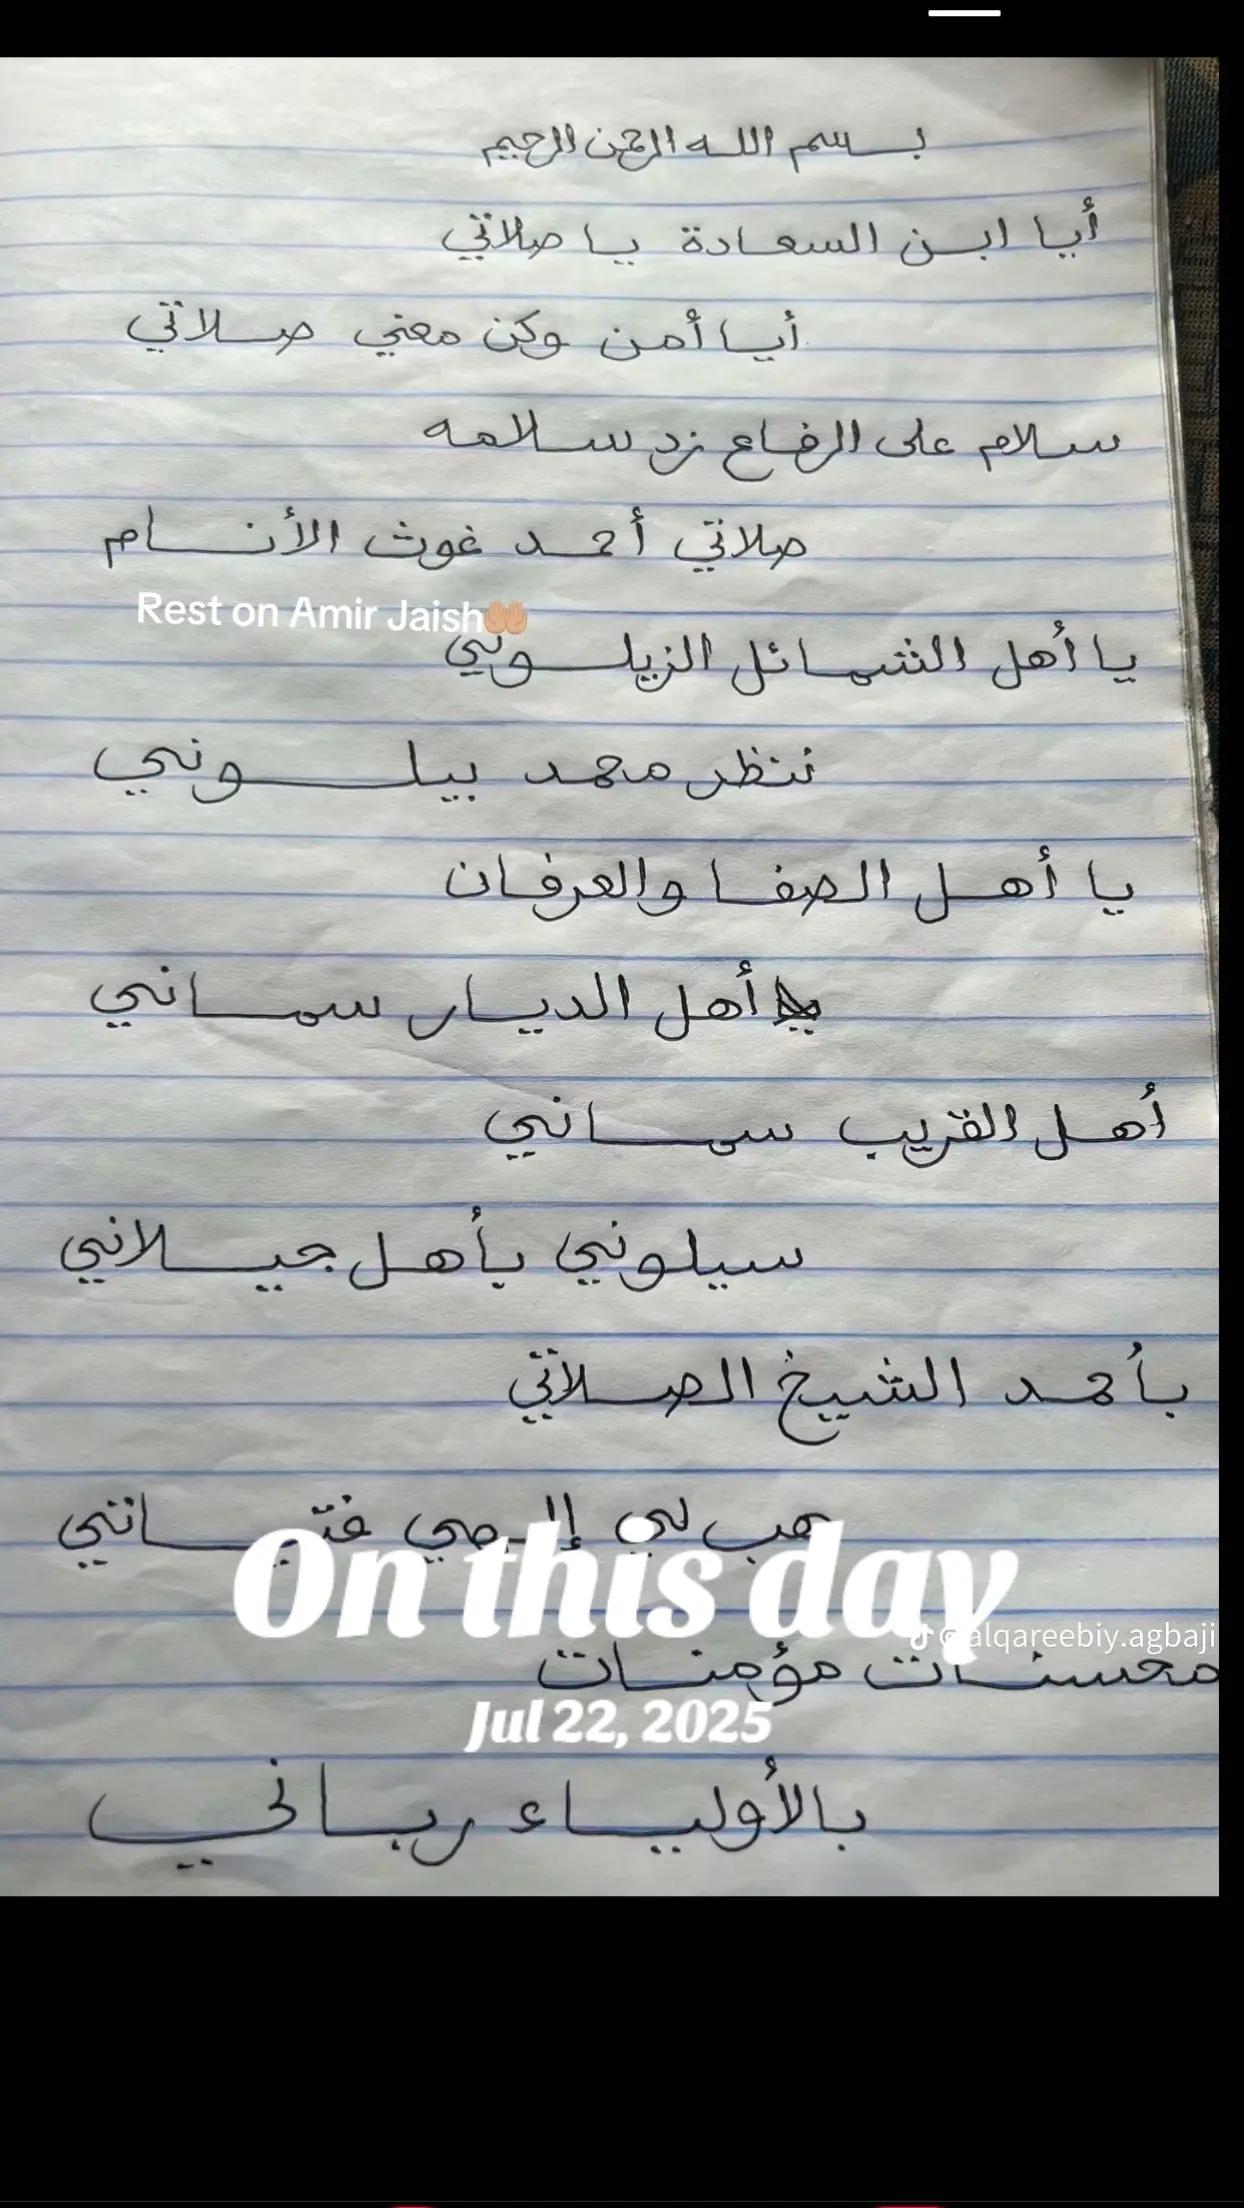 بسم الله الرحمن الرحيم
أيا ابن السعادة يا صلاتي
أيا أمن وكن معني صلاتي
سلام على الرفاع زد سلامه
صلاتي أحمد غوث الأنام
Rest on Amir Jaish🤲🏼
يا أهل الشمائل الزيلوني
ننظر محمد بيلوني
يا أهل الصفا والعرفان
أهل الديار سماني
أهل القريب سماني
سيلوني بأهل جيلاني
بأحمد الشيخ الصلاتي
هب لي إلهي
On this day
@alqareebiy.agbaji
محسنات مؤمنات
Jul 22, 2025
بالأولياء رباني